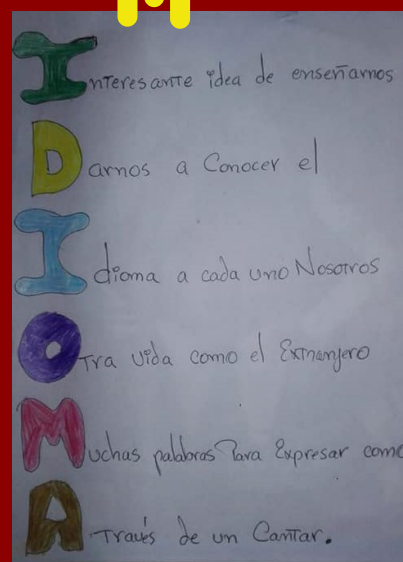 Interesante idea de enseñarnos
Darnos a Conocer el
Idioma a cada uno Nosotros
Otra vida como el Extranjero
Muchas palabras Para Expresar como
Através de un Cantar.